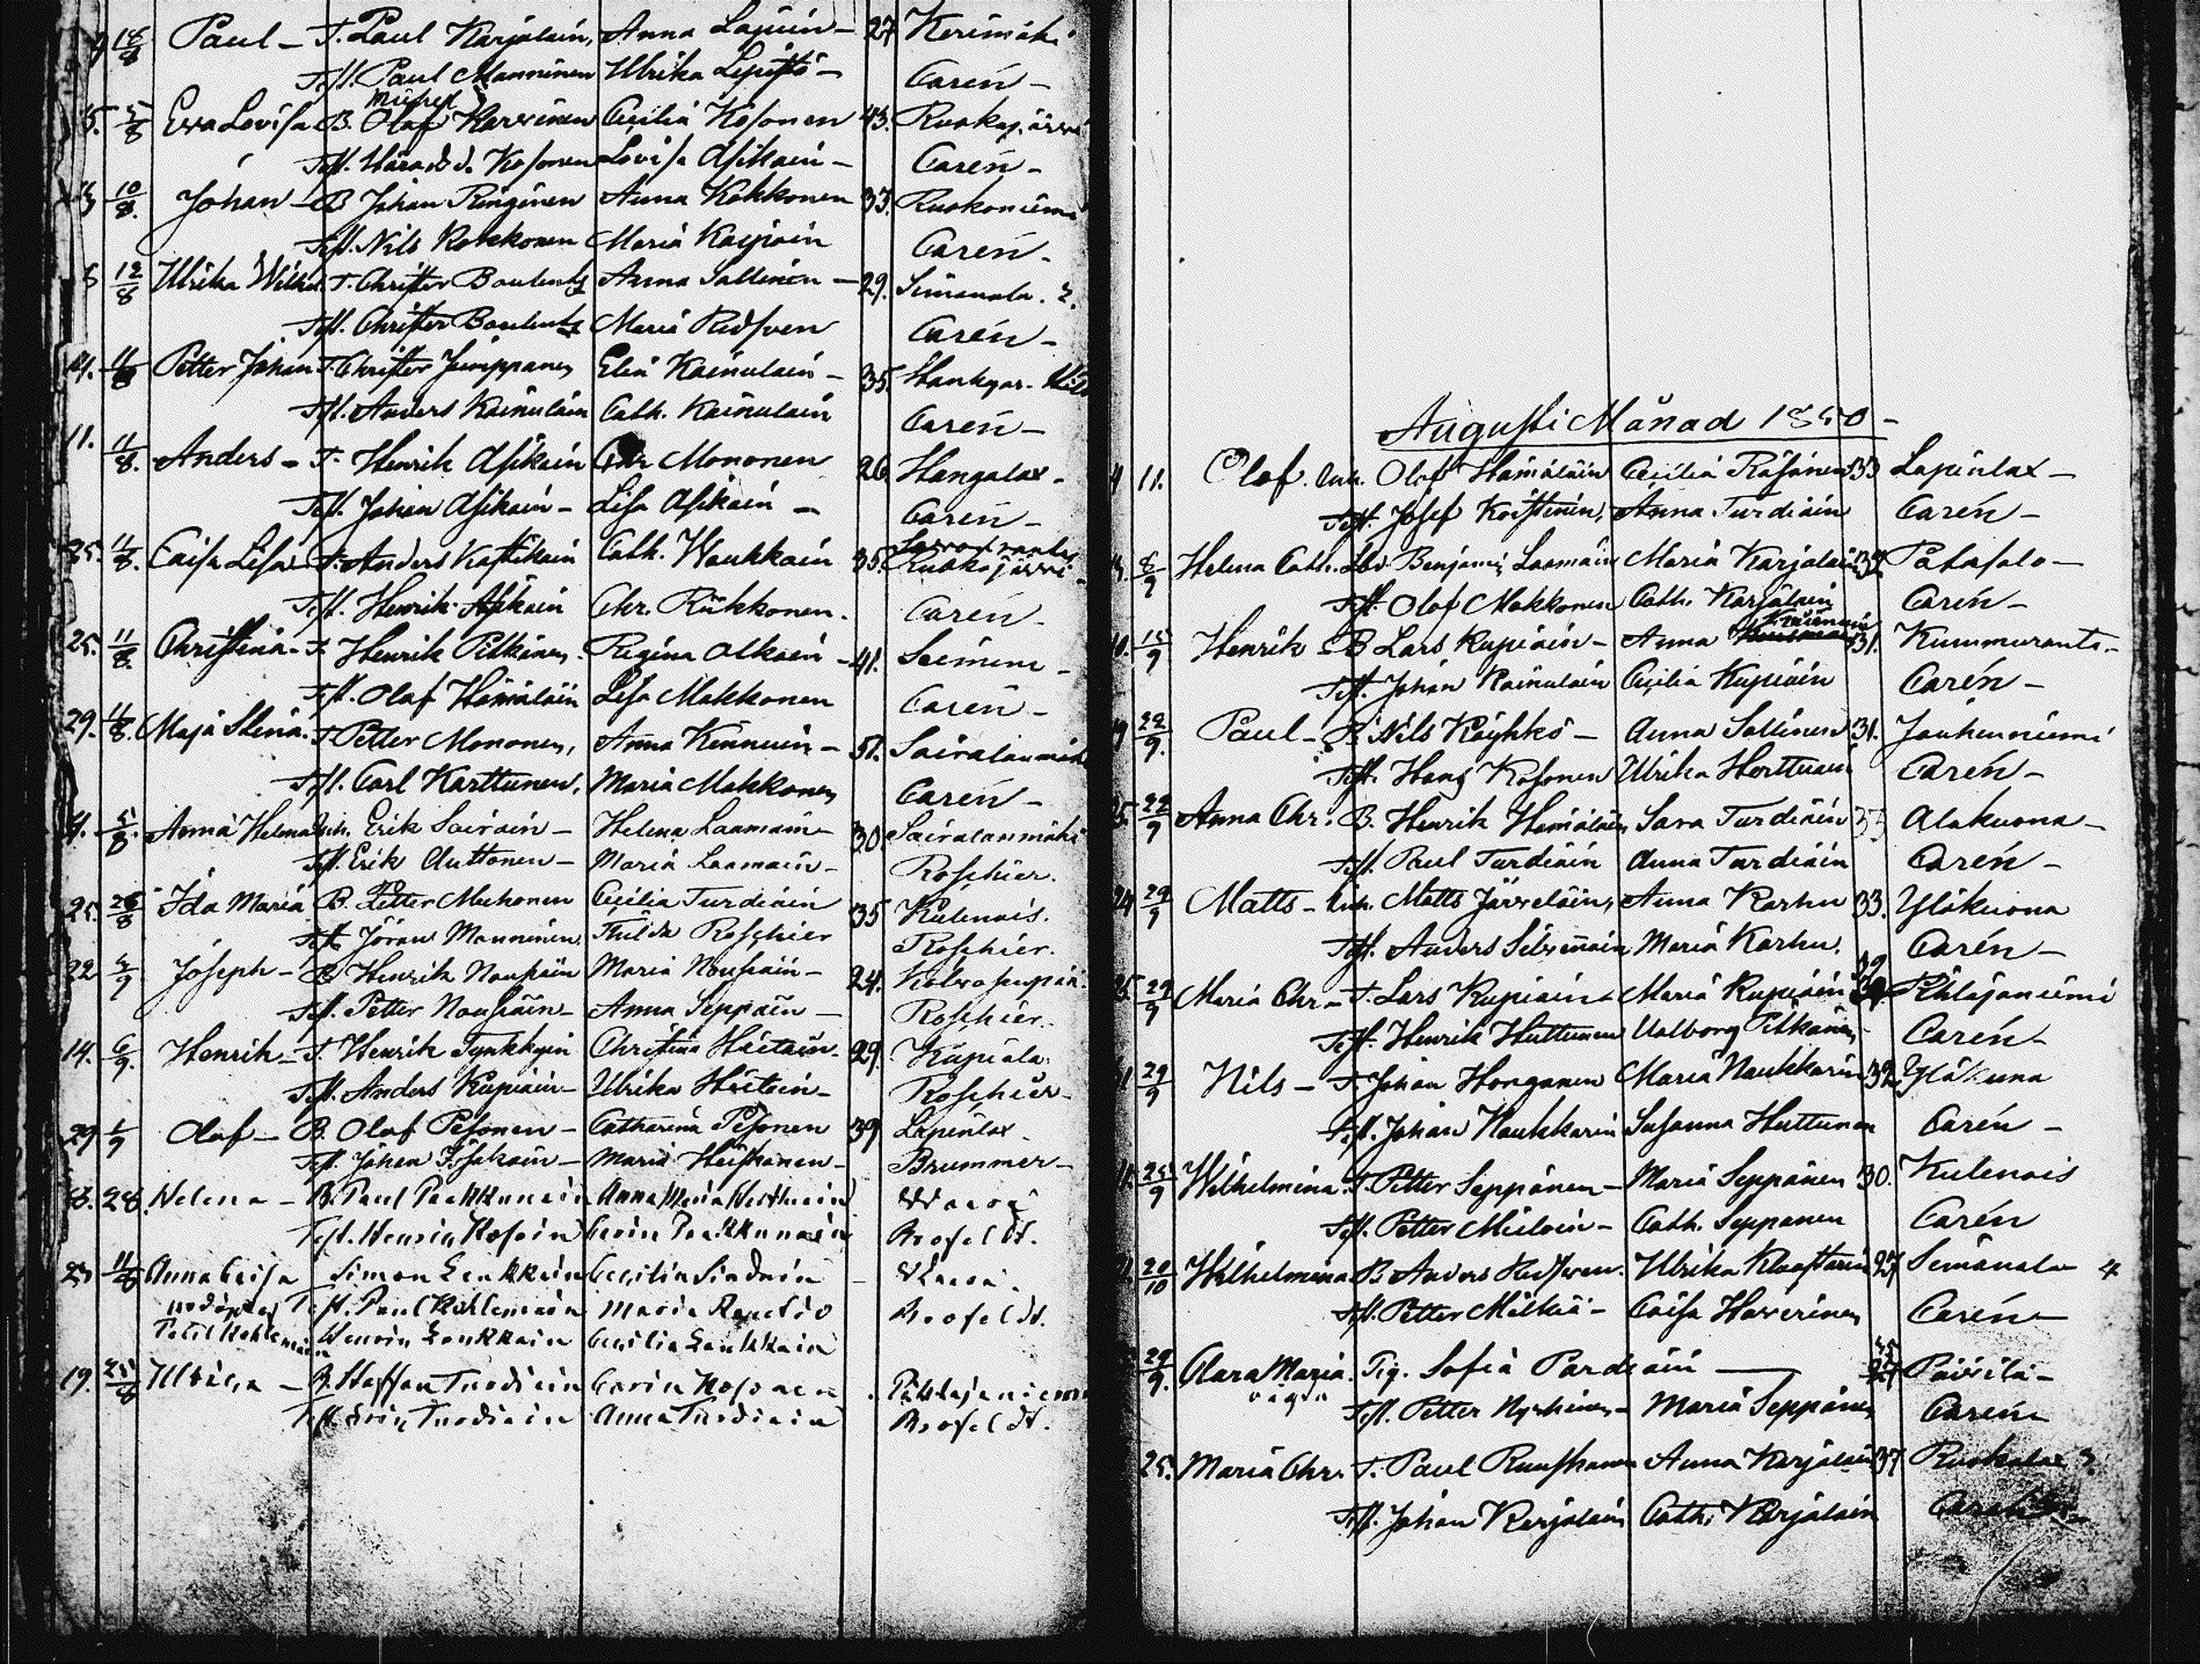 18/8 Paul – T. Paul Karjalain, Anna Lapuin – 27 Kerimäki
Test. Paul Manninen Ulrika – Carén –
Michel
5. 5/8 Eva Lovisa B. Olof Karvinen Cecilia Kosonen 43. Ruokojärvi
Test. Kosonen Lovisa Asikain – Carén –
10/8. Johan – B Johan Ringinen Anna Kokkonen 33. Ruokoniemi
Test. Nils Kokkonen Maria Carén –
12/8 Ulrika Wilhel. T. Christer Anna Sallinen – 29. Simanala. 2.
Test. Christer Maria Redsven Carén –
14. 11/8 Petter Johan T. Christer Jumppanen Elin Kainulain – 35.
Test. Anders Kainulain Cath. Kainulain Carén –
11. 11/8. Anders – T. Henrik Asikain Chr Mononen 26. Hangalax –
Test. Johan Asikain – Lisa Asikain – Carén –
25. 11/8. Caisa Lisa – T. Anders Cath. Waukkain 35. Ruokojärvi –
Test. Henrik Asikain Chr. Riikkonen. Carén –
25. 11/8. Christina – T Henrik Pitkänen. Regina Olkain – 41. –
Test. Olof Hämäläin Lisa Makkonen Carén –
29. 11/8. Maja Stina. T Petter Mononen, Anna Kinnuin – 51. Sairalanmäki
Test. Carl Karttunen, Maria Makkonen Carén –
4. 5/8. Anna Helena Inh. Erik Sairain – Helena Laamain – 30. Sairalanmäki
Test. Erik Auttonen – Maria Laamain – Roschier.
25. 25/8 Ida Maria B. Petter Muhonen Cecilia Turdiain 35 Kulennois.
Test. Jöran Manninen. Thilda Roschier Roschier.
22 /9 Joseph – B Henrik Nousiäin Maria Nousiäin – 24.
Test. Petter Nousiäin – Anna Seppäin – Roschier.
14. 6/9. Henrik – T. Henrik Tynkkyin Christina Hietain – 29. Kupiala.
Test. Anders Kupiain – Ulrika Hietain – Roschier –
29 1/9 Olof – B. Olof Pesonen – Catharina Pesonen 39 Lapinlax –
Test. Johan – Maria Heiskanen – Brummer –
8. 28. Helena – B. Paul Anna Maria
Test. Henrik Brofeldt.
11/8 Anna Caisa Simon Laukkain Cecilia –
Test. Paul Maria Brofeldt.
Henrik Laukkain Cecilia Laukkain
19. 25/8 Ulrica – B. Staffan Turdiain Carin Kosonen. Pihlajaniemi
Test. Eric Turdiain Anna Turdiain Brofeldt.
Augusti Månad 1850 –
4 11. Olof. Inh. Olof Hämäläin Cecilia Räsänen 33 Lapinlax –
Test. Josef Koistinen, Anna Turdiain Carén –
8/9 Helena Cath. Benjamin Laamain Maria Karjalain 32 Pätäsalo –
Test. Olof Makkonen Cath. Karjalain Carén –
10. 15/9 Henrik – B Lars Kupiain – Anna 31. Kummuranta –
Test. Johan Kainulain Cecilia Kupiain Carén –
19 22/9. Paul – B. Nils Käyhkö – Anna Sallinen 31. Jouhenniemi
Test. Hans Kosonen Ulrika Herttuain Carén –
25. 22/9 Anna Chr. B. Henrik Hämäläin Sara Turdiain 33 Alakuona –
Test. Paul Turdiain Anna Turdiain Carén –
24 29/9 Matts – Inh. Matts Järveläin, Anna Karhu 33. Yläkuona
Test. Anders Silvennäin Maria Karhu. Carén –
39
25. 29/9 Maria Chr – T. Lars Kupiain – Maria Kupiain Pihlajaniemi
Test. Henrik Huttunen Walborg Pitkänen – Carén –
29/9 Nils – T. Johan Honganen Maria Naukkarin 32 Yläkuna
Test. Johan Naukkarin Susanna Huttunen Carén –
11. 25/9 Wilhelmina. T. Petter Seppänen – Maria Seppänen 30. Kulennois
Test. Petter – Cath. Seppänen Carén
20/10 Wilhelmina B. Anders Redsven. Ulrika Klaastarin 27 Simanala 4
Test. Petter – Caisa Haverinen Carén –
29/9. Clara Maria. Pig. Sofia Pardiain – Päivilä –
oägta
Test. Petter Nyhinen – Maria Seppänen Carén –
25. Maria Chr. T. Paul Ruuskanen Anna Karjalain 37
Test. Johan Karjalain Cath. Karjalain Carén